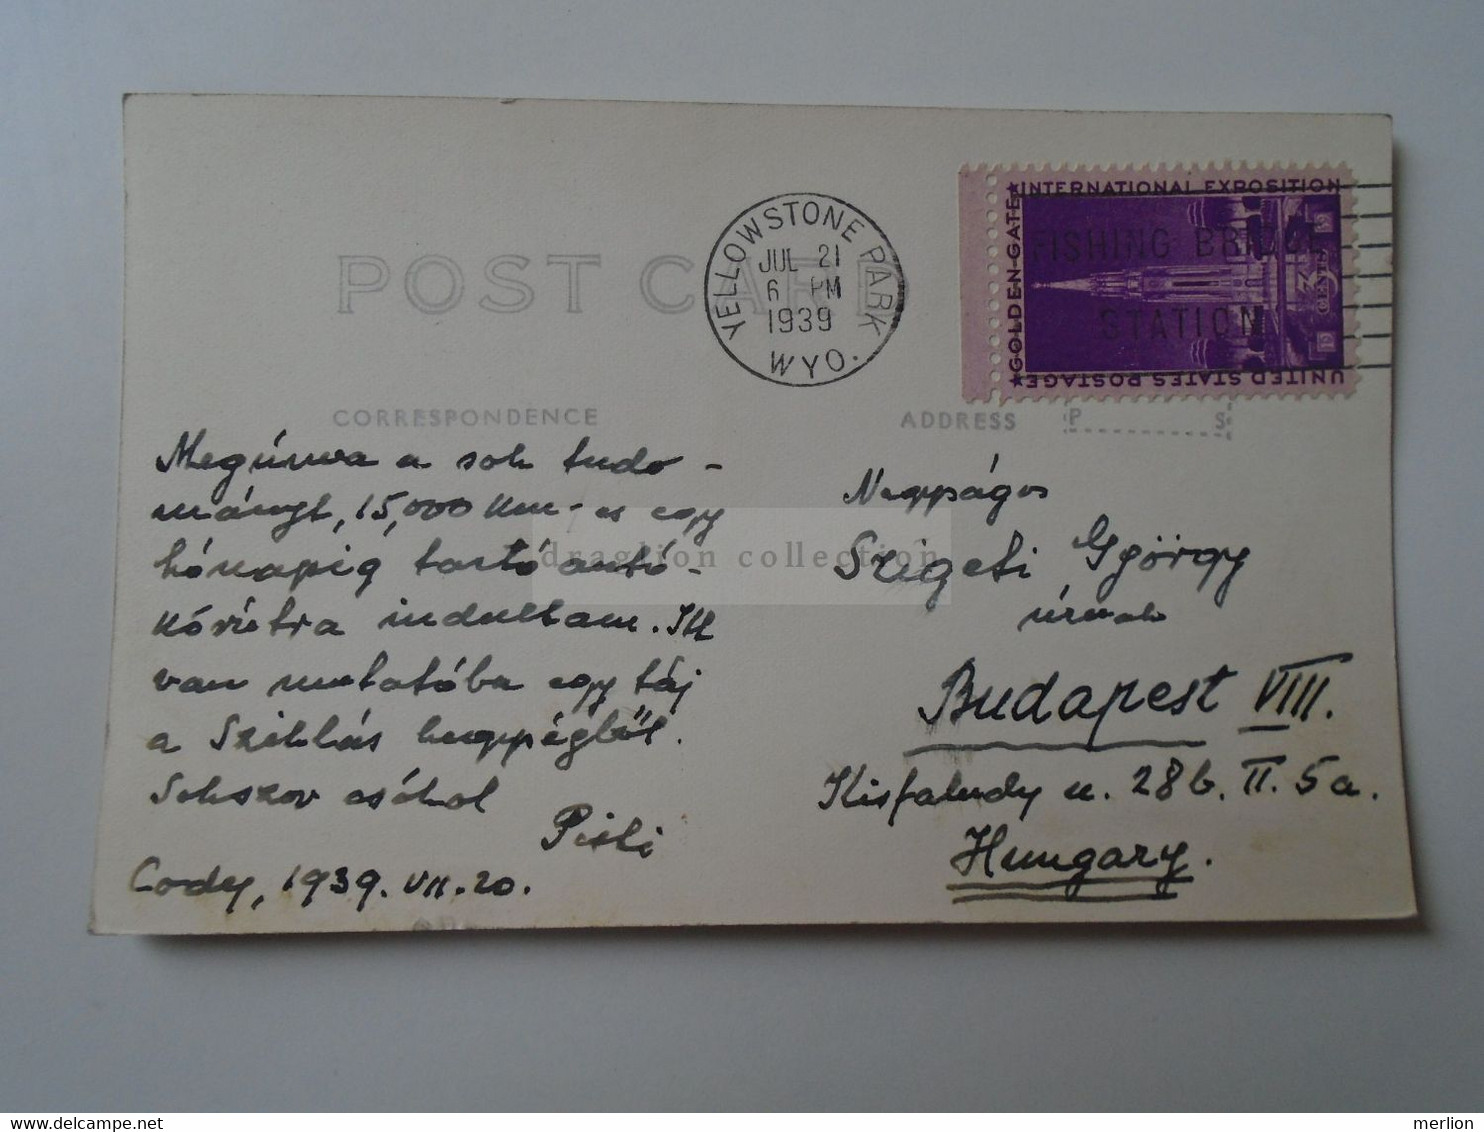 POST CARD
YELLOWSTONE PARK
JUL 21
6 PM
1939
WYO.
INTERNATIONAL EXPOSITION
GOLDEN GATE
UNITED STATES POSTAGE
3 CENTS
19 39
FISHING BRIDGE
STATION
CORRESPONDENCE
ADDRESS
P S
Megúnva a sok tudo-
mányt, 15,000 km-es egy
hónapig tartó autó-
kőrútra indultam. Itt
van mutatóba egy táj
a Sziklás hegységből.
Sokszor csókol
Pisti
Cody, 1939. VII. 20.
Nagyságos
Szigeti György
úrnak
Budapest VIII.
Kisfaludy u. 28b. II. 5a.
Hungary.
draglion collection
delcampe.net
merlion